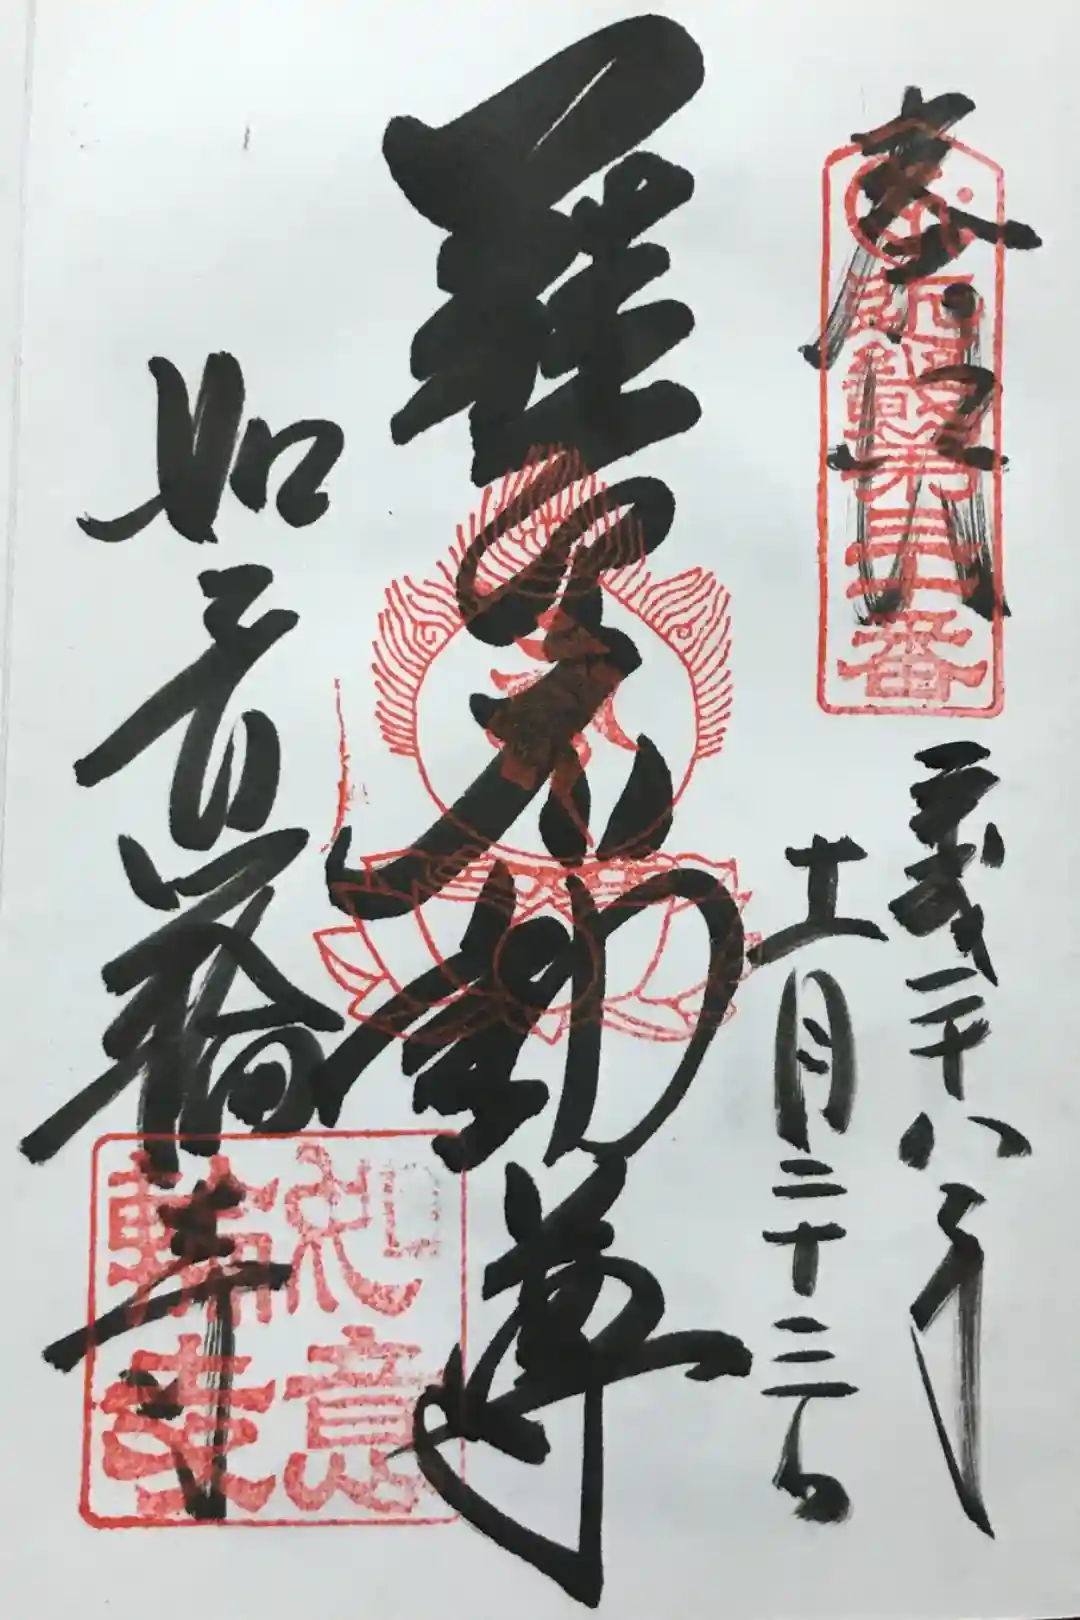 奉拝
近畿第三十番
平成二十八年
十一月二十三日
難切不動尊
如意輪寺
如意輪寺